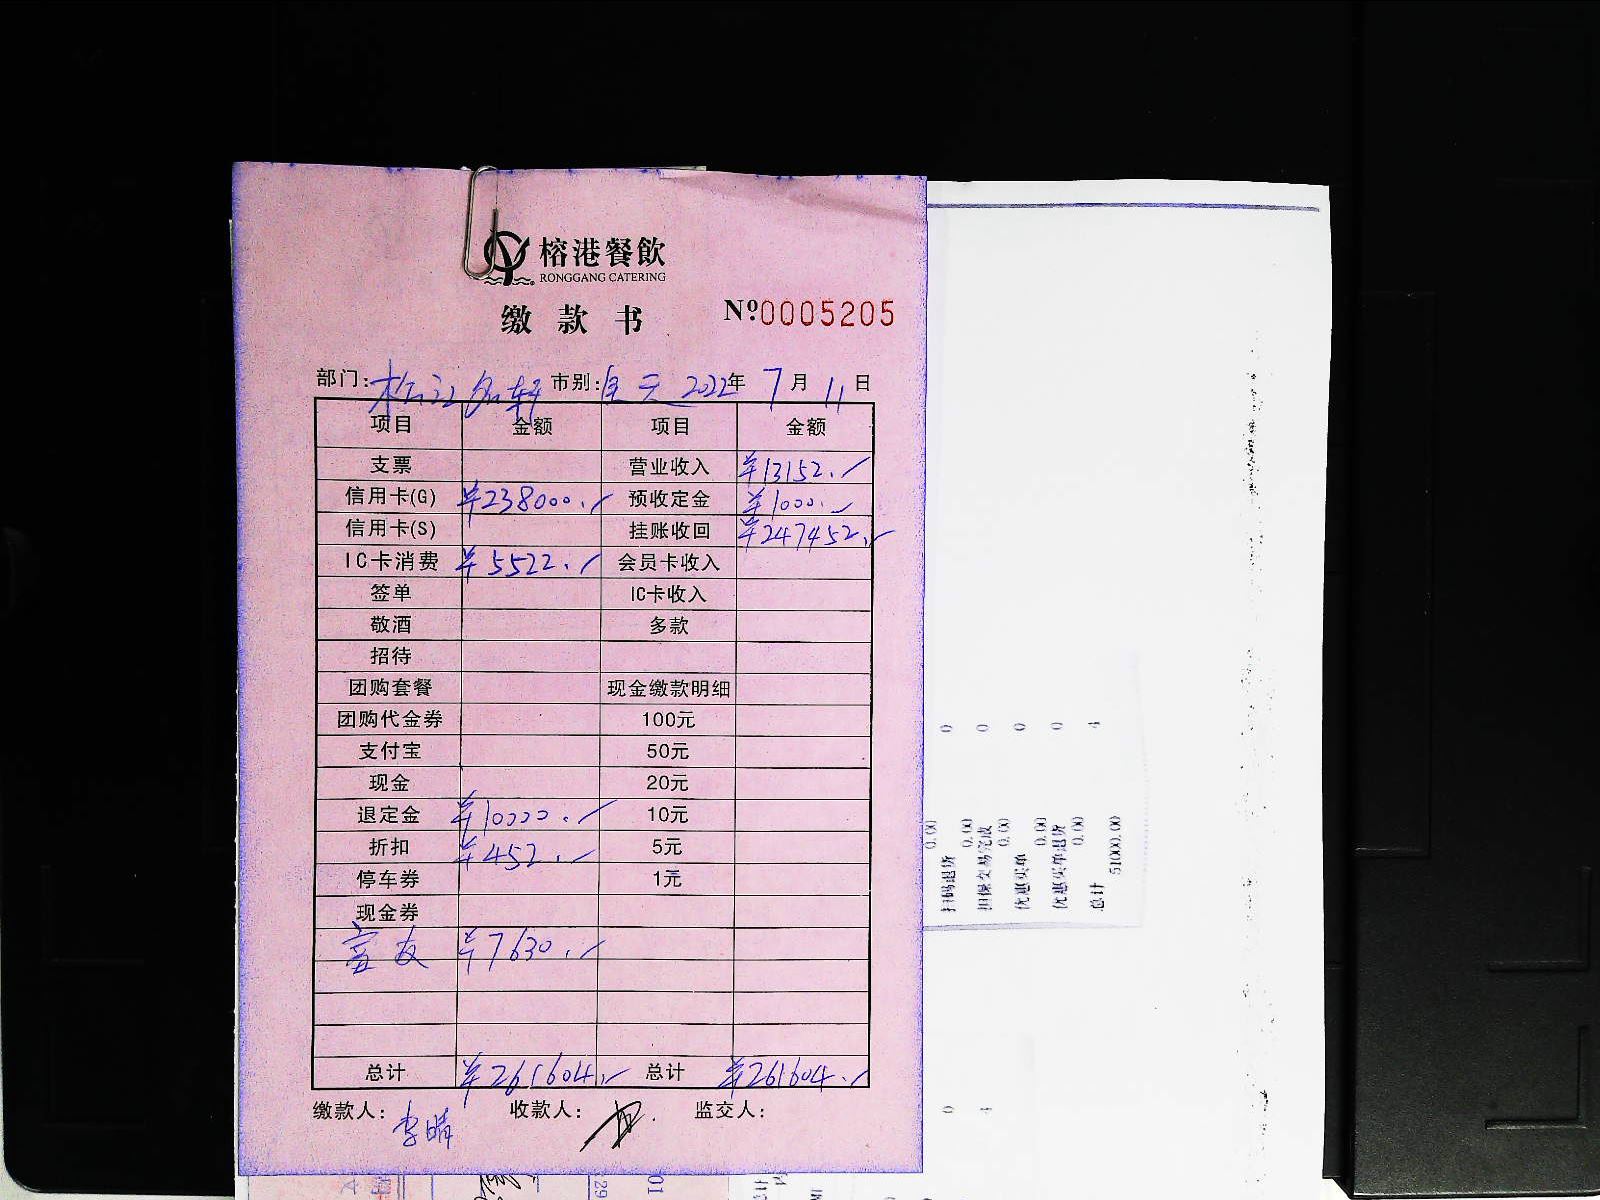 榕港餐飲
RONGGANG CATERING
缴款书 №0005205
部门:松江名轩 市别:全天 2022年7月11日
项目 金额 项目 金额
支票 营业收入 ¥13152.-
信用卡(G) ¥238000.- 预收定金 ¥1000.-
信用卡(S) 挂账收回 ¥247452.-
IC卡消费 ¥5522.- 会员卡收入
签单 IC卡收入
敬酒 多款
招待
团购套餐 现金缴款明细
团购代金券 100元
支付宝 50元
现金 20元
退定金 ¥10000.- 10元
折扣 ¥452.- 5元
停车券 1元
现金券
富友 ¥7630.-
总计 ¥261604.- 总计 ¥261604.-
缴款人:李晴 收款人: 监交人:
0.00
扫码退货 0
0.00
担保交易完成 0
0.00
优惠买单 0
0.00
优惠买单退货 0
0.00
总计 4
51000.00